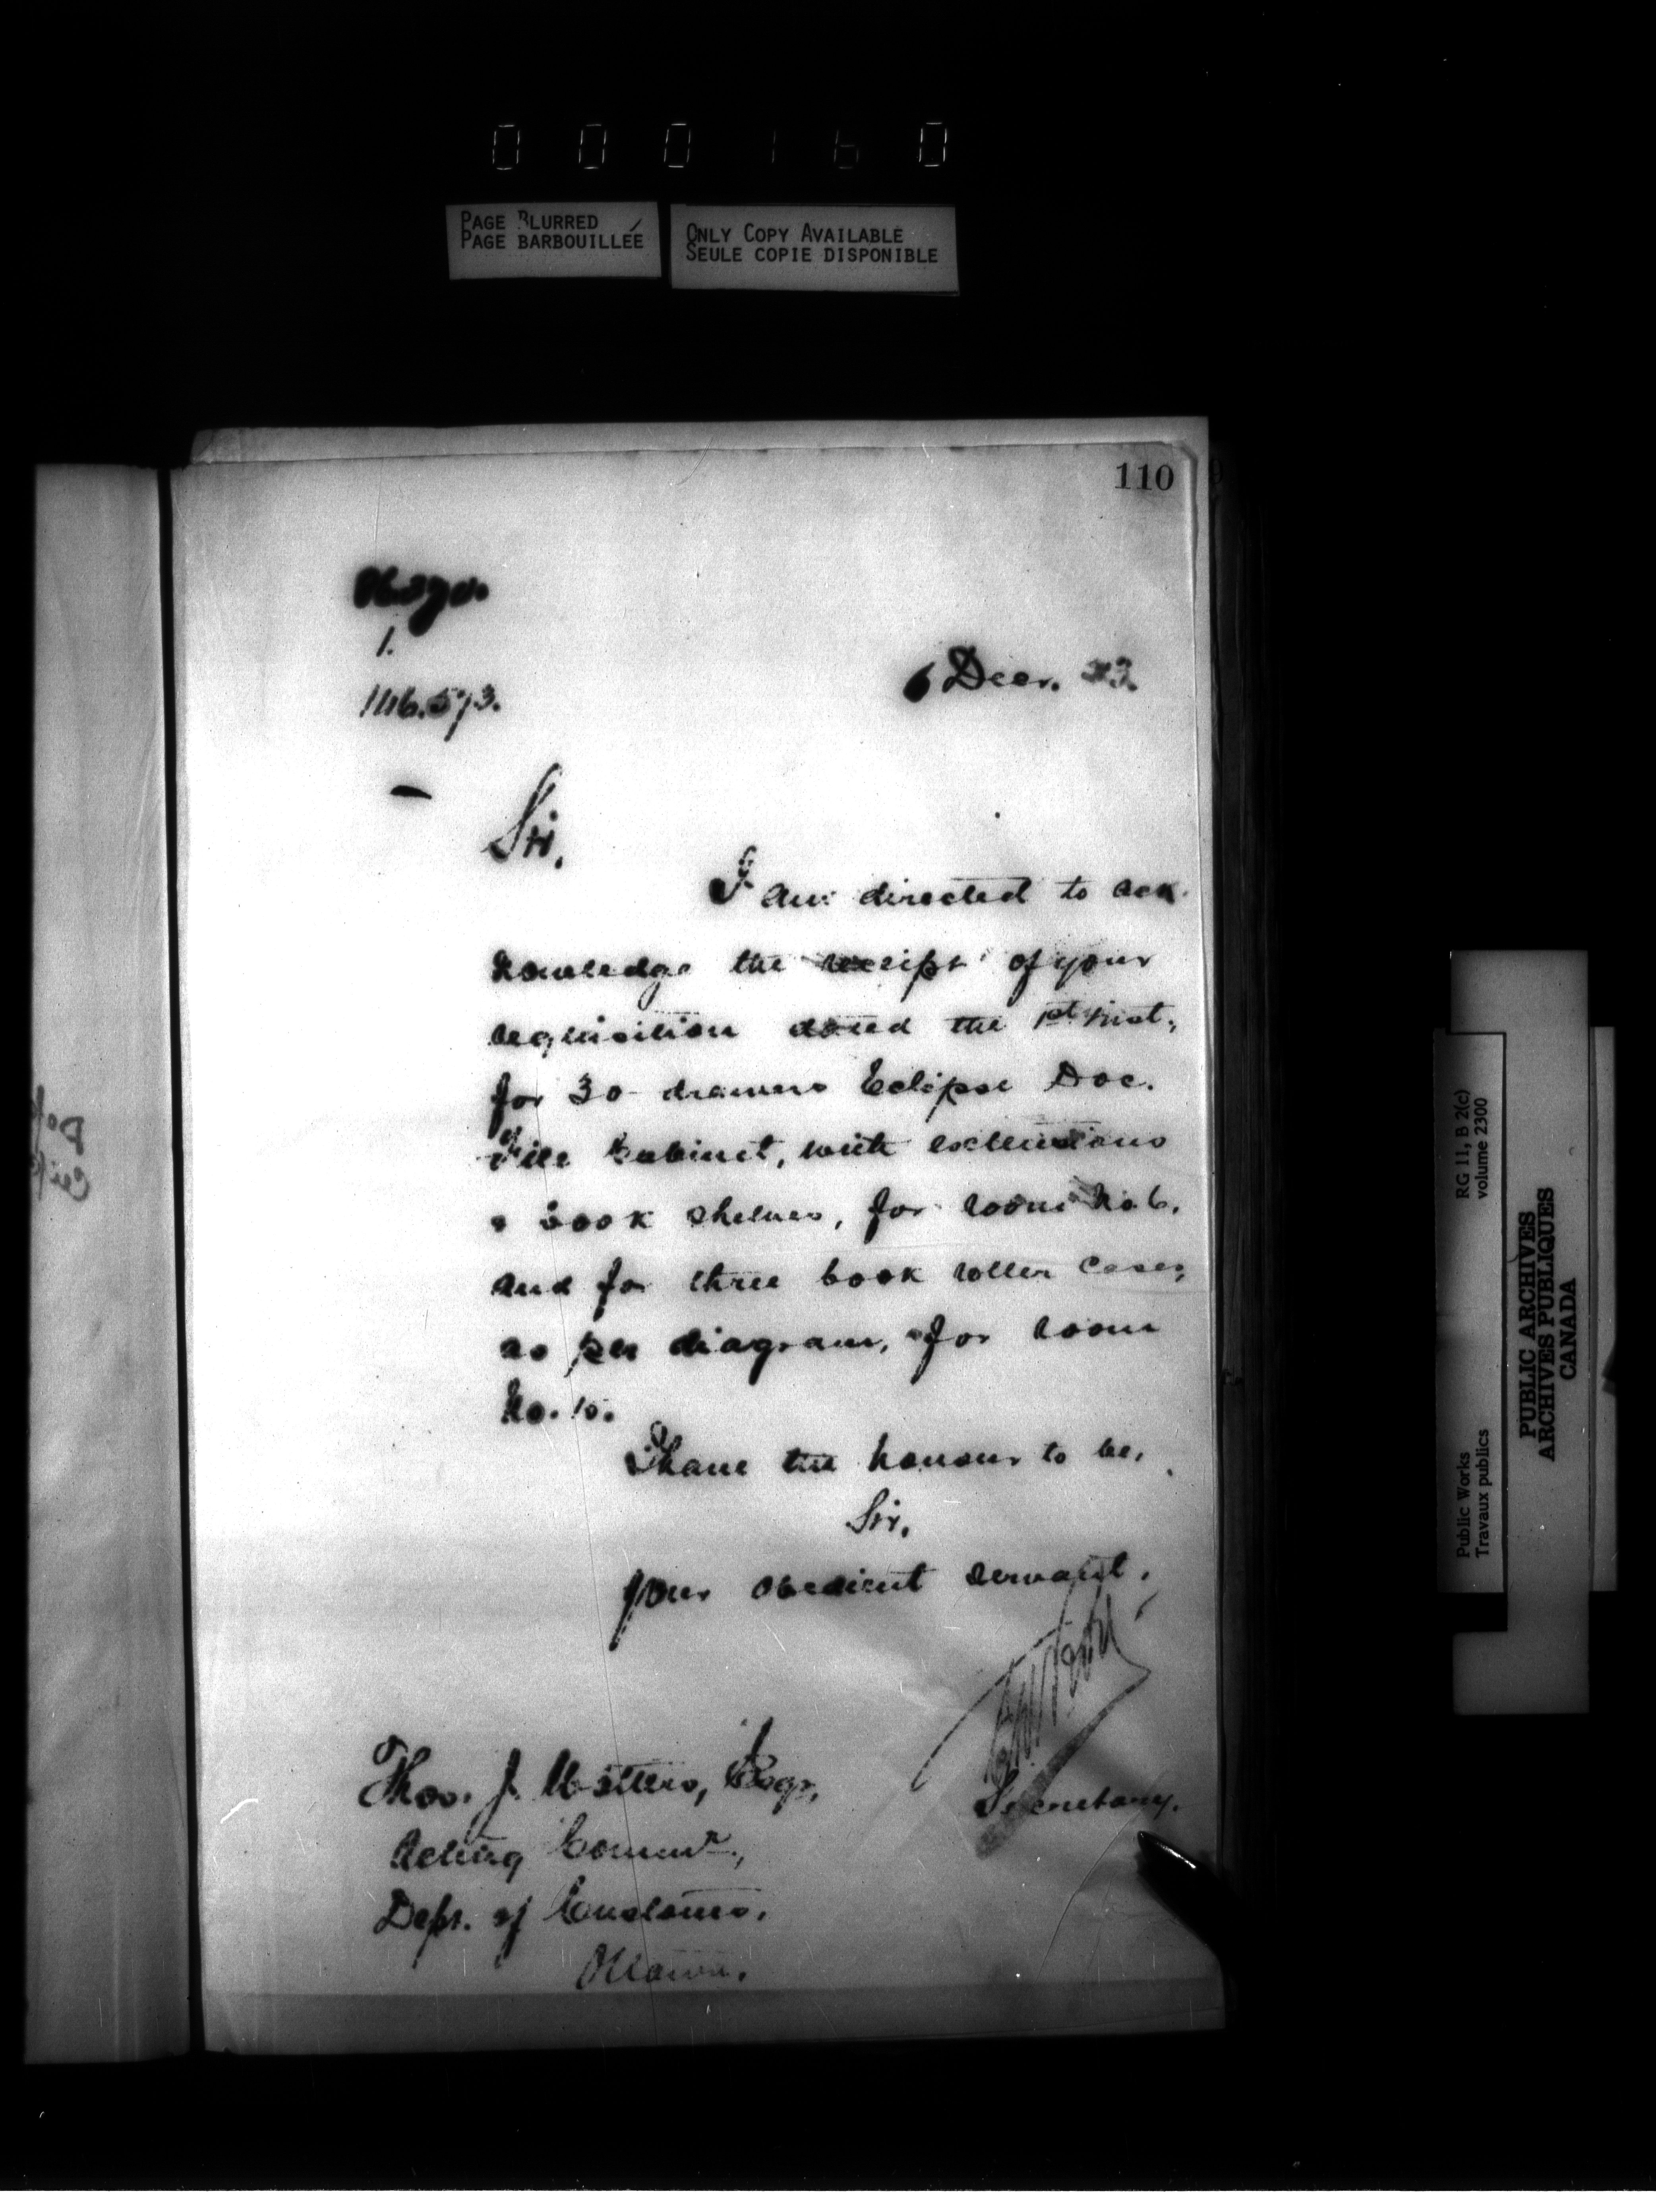 000160
PAGE BLURRED
PAGE BARBOUILLÉE
ONLY COPY AVAILABLE
SEULE COPIE DISPONIBLE
110
1.
146.573.
6 Decr. 93.
Sir,
I am directed to ack-
knowledge the receipt of your
requisition dated the 1st inst.,
for 30 drawers Eclipse Doc.
File Cabinet, with extensions
& book shelves, for room No 6,
and for three book roller cases,
as per diagram, for room
No. 10.
I have the honour to be,
Sir,
your obedient servant,
Secretary.
Thos. J. Watters, Esqr.,
Acting Commr.,
Dept. of Customs,
Ottawa.
RG 11, B 2(c)
volume 2300
Public Works
Travaux publics
PUBLIC ARCHIVES
ARCHIVES PUBLIQUES
CANADA